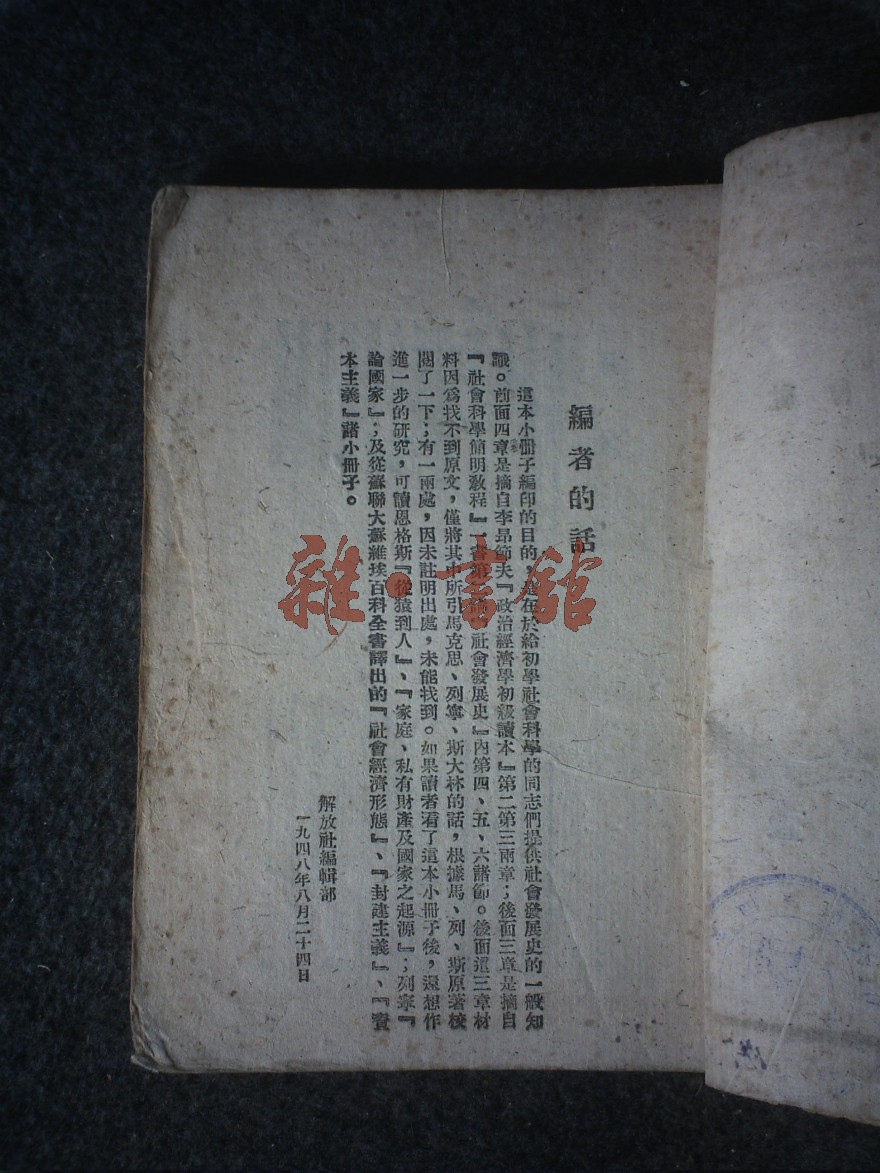 編者的話
這本小冊子編印的目的，是在於給初學社會科學的同志們提供社會發展史的一般知
識。前面四章是摘自李昂節夫『政治經濟學初級讀本』第二第三兩章；後面三章是摘自
『社會科學簡明教程』一書第 社會發展史』內第四、五、六諸節。後面這三章材
料因爲找不到原文，僅將其中所引馬克思、列寧、斯大林的話，根據馬、列、斯原著校
閱了一下；有一兩處，因未註明出處，未能找到。如果讀者看了這本小冊子後，還想作
進一步的研究，可讀恩格斯『從猿到人』、『家庭、私有財產及國家之起源』；列寧『
論國家』；及從蘇聯大蘇維埃百科全書譯出的『社會經濟形態』、『封建主義』、『資
本主義』諸小冊子。
解放社編輯部
一九四八年八月二十四日
雜·書館